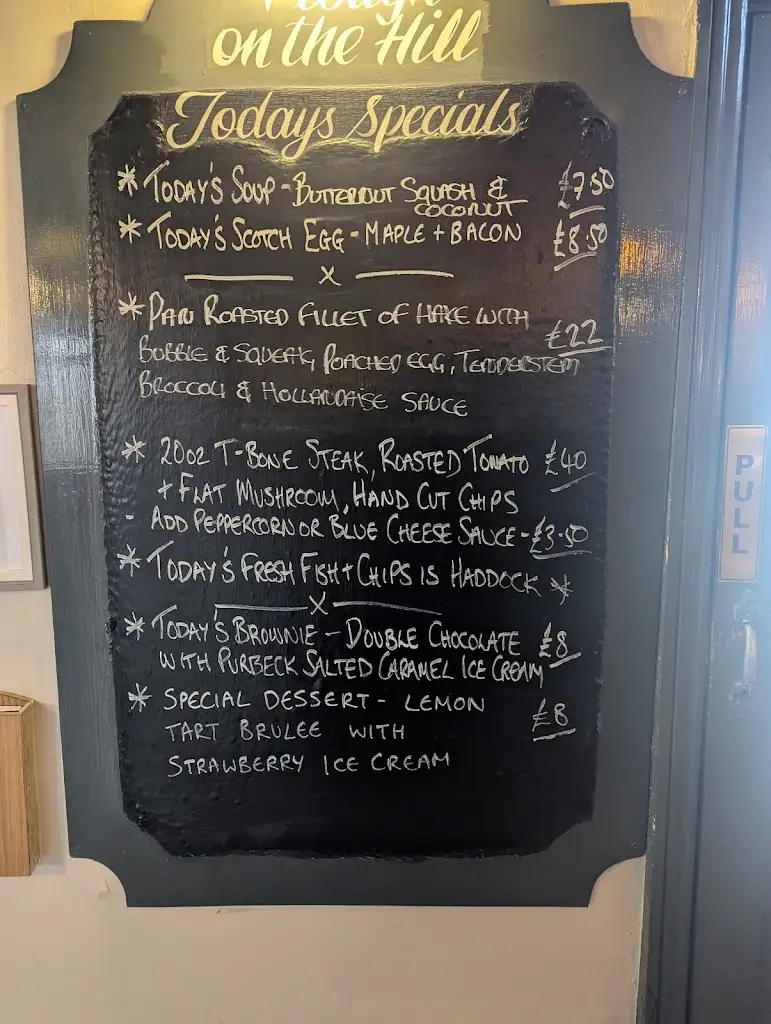 Plough
on the Hill
Todays Specials
* TODAY'S SOUP - BUTTERNUT SQUASH & COCONUT £7.50
* TODAY'S SCOTCH EGG - MAPLE + BACON £8.50
x
* PAN ROASTED FILLET OF HAKE WITH £22
BUBBLE & SQUEAK, POACHED EGG, TENDERSTEM
BROCCOLI & HOLLANDAISE SAUCE
* 20oz T-BONE STEAK, ROASTED TOMATO £40
+ FLAT MUSHROOM, HAND CUT CHIPS
- ADD PEPPERCORN OR BLUE CHEESE SAUCE - £3.50
* TODAY'S FRESH FISH + CHIPS IS HADDOCK *
x
* TODAY'S BROWNIE - DOUBLE CHOCOLATE £8
WITH PURBECK SALTED CARAMEL ICE CREAM
* SPECIAL DESSERT - LEMON £8
TART BRULEE WITH
STRAWBERRY ICE CREAM
PULL